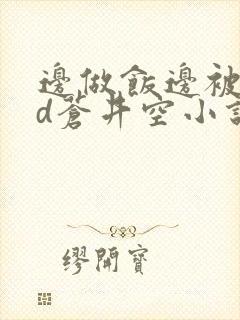 邊做飯邊被
d蒼井空小說
繆開寶